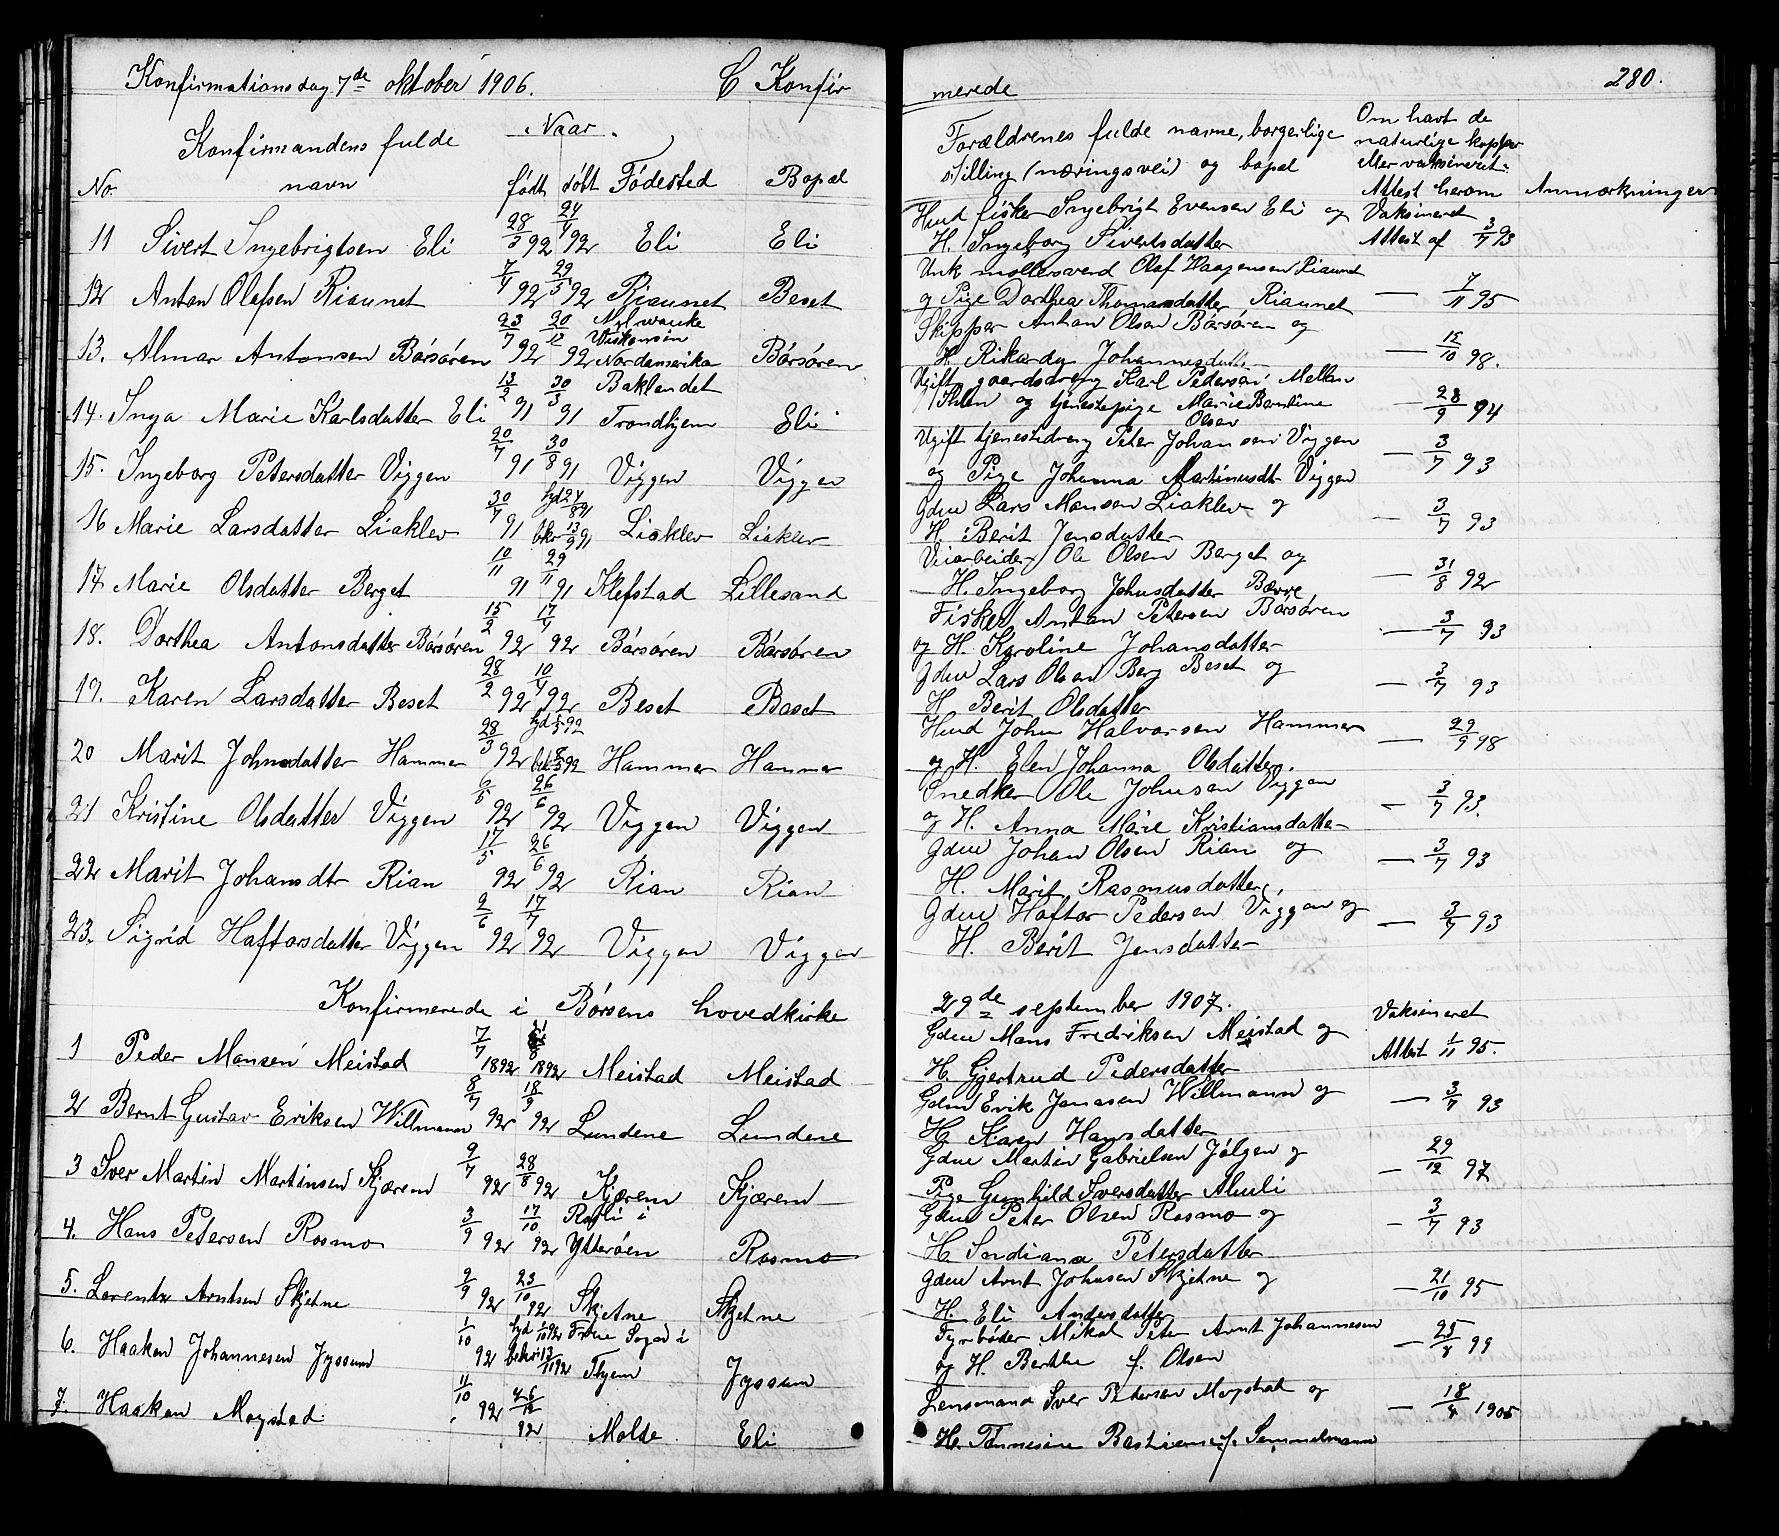 Konfirmationsdag 7de oktober 1906. C Konfir
merede 280.
No. Konfirmandens fulde navn Naar født døbt Fødested Bopæl
Forældrenes fulde navne, borgerlige stilling (næringsvei) og bopæl
Om havt de naturlige kopper eller vaksineret. Attest herom Anmærkninger
11 Sivert Ingebrigtsen Eli 28/3 92 24/4 92 Eli Eli
Husd fisker Ingebrigt Evensen Eli og Vaksineret
H. Ingeborg Sivertsdatter Attest af 3/7 93
12 Anton Olefsen Riaunet 7/4 92 29/5 92 Riaunet Beset
Unk møllersvend Olaf Haagensen Riaunet
og Pige Dorthea Thomasdatter Riaunet — 7/11 95
13. Almar Antonsen Børsøren 23/7 92 20/12 92 Milwauke Viskonsin Nordamerika Børsøren
Skipper Anton Olsen Børsøren og
H. Rikarda Johannesdatter — 15/10 98.
14. Inga Marie Karlsdatter Eli 13/2 91 30/3 91 Baklandet Trondhjem Eli
Ugift gaardsdreng Karl Pedersen Mellem
Ihlen og tjenestepige Marie Berntine Olsen — 28/9 94
15. Ingeborg Petersdatter Viggen 20/7 91 30/8 91 Viggen Viggen
Ugift tjenestedreng Peter Johansen Viggen
og Pige Johanna Martinusdt Viggen — 3/7 93
16 Marie Larsdatter Liaklev 30/7 91 hjd 24/8 91 bkr 13/9 91 Liaklev Liaklev
Gdm Lars Monsen Liaklev og
H. Berit Jensdatter — 3/7 93
17 Marie Olsdatter Berget 10/11 91 29/11 91 Klefstad Lillesand
Veiarbeider Ole Olsen Berget og
H. Ingeborg Johnsdatter Bævre — 31/8 92
18. Dorthea Antonsdatter Børsøren 15/2 92 17/4 92 Børsøren Børsøren
Fisker Anton Petersen Børsøren
og H. Karoline Johansdatter — 3/7 93
19. Karen Larsdatter Beset 28/2 92 10/4 92 Beset Beset
Gdm Lars Olsen Berg Beset og
H Berit Olsdatter — 3/7 93
20 Marit Johnsdatter Hammer 28/3 92 92 92 Hammer Hammer
Husd John Halvorsen Hammer
og H. Elen Johanna Olsdatter. — 29/9 98
21 Kristine Olsdatter Viggen 6/5 92 26/6 92 Viggen Viggen
Snedker Ole Johnsen Viggen
og H. Anna Marie Kristiansdatter — 3/7 93.
22 Marit Johansdt Rian 17/5 92 26/6 92 Rian Rian
Gdm Johan Olsen Rian og
H. Marit Rasmusdatter. — 3/7 93
23. Sigrid Haftorsdatter Viggen 2/6 92 17/7 92 Viggen Viggen
Gdm Haftor Pedersen Viggen og
H. Berit Jensdatter — 3/7 93
Konfirmerede i Børsens hovedkirke 29de september 1907.
1 Peder Monsen Meistad 7/7 1892 1892 Meistad Meistad
Gdm Mons Fredriksen Meistad og Vaksineret
H. Gjertrud Pedersdatter Attest 1/11 95.
2 Bernt Gustav Eriksen Willmann 8/7 92 18/9 92 Lundene Lundene
Gdm Erik Jonasen Willmann og
H. Karen Hansdatter — 3/7 93
3 Iver Martin Martinsen Kjærem 9/7 92 28/8 92 Kjærem Kjærem
Gdm Martin Gabrielsen Jølgen og
Pige Gunhild Iversdatter — 29/12 97
4. Hans Petersen Rosmo 3/9 92 17/10 92 i Ytterøen Rosmo
Gdm Peter Olsen Rosmo og
H. Indiana Petersdatter — 3/7 93
5. Lorents Arntsen Skjetne 9/9 92 23/10 92 Skjetne Skjetne
Gdm Arnt Johnsen Skjetne og
H. Eli Andersdatter — 21/10 95
6. Haakon Johannesen Gyssum 1/10 92 92 13/11 92 Sogn i Thjem Gyssum
Fyrbøder Mikal Peter Arnt Johannesen
og H. Berthe f. Olsen — 25/4 99
7. Haakon Mogstad 11/10 92 26/12 92 Molde Eli
Lensmand Iver Petersen Mogstad og
H. Tønnesine f. Semmelmann — 18/4 1905